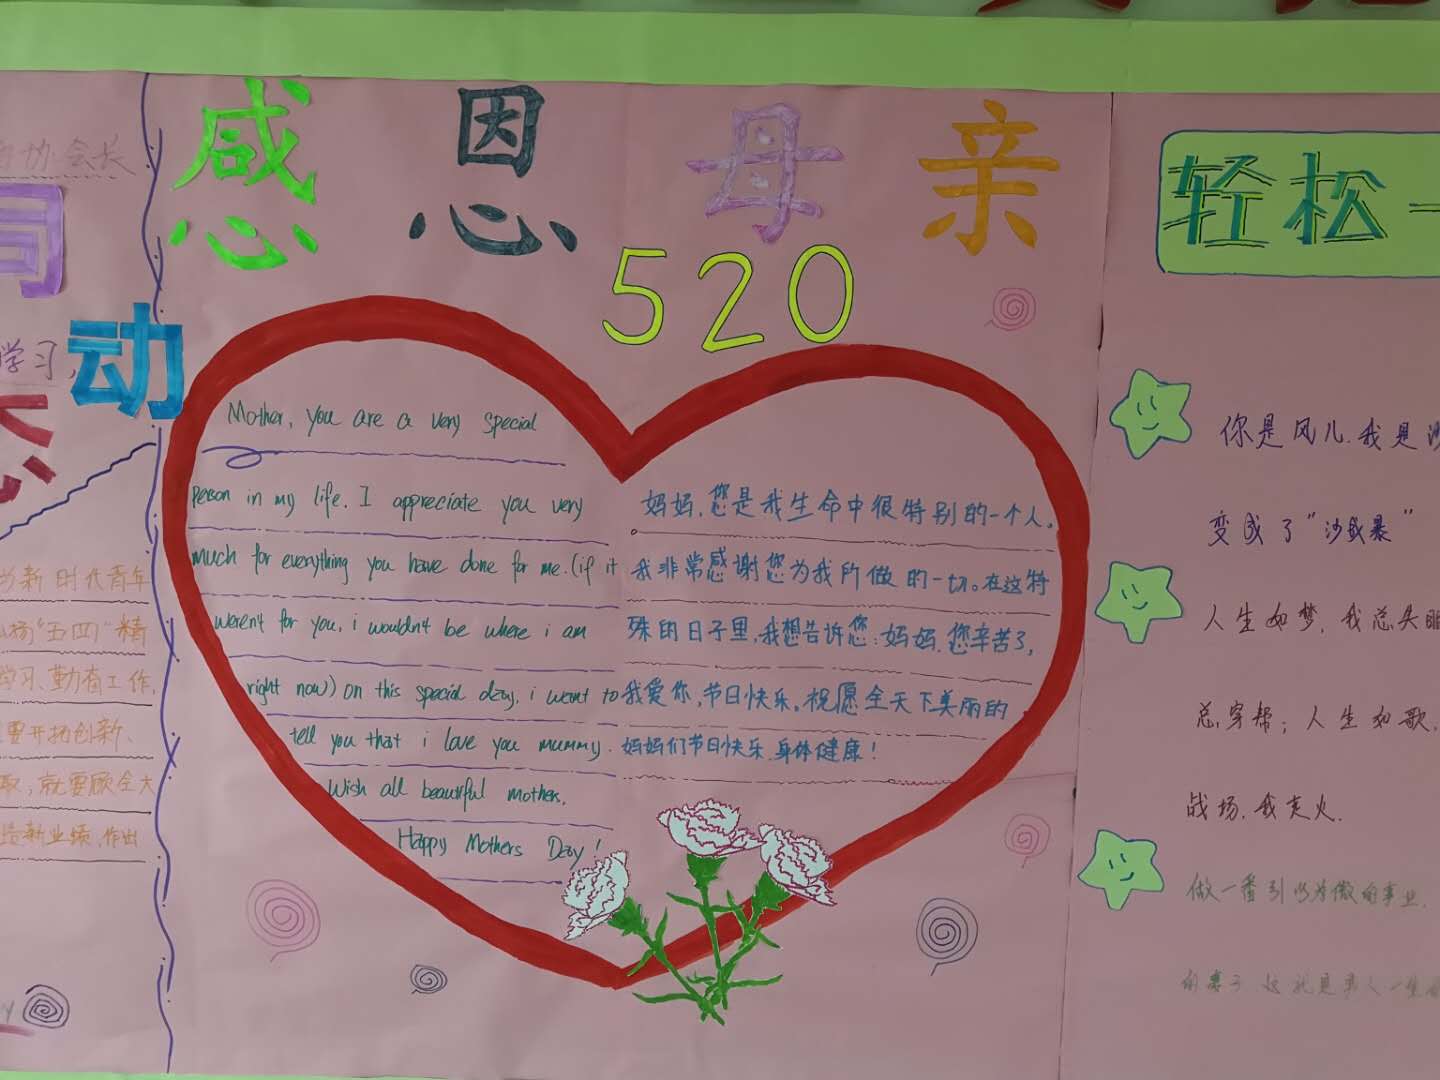 感恩母亲
520
Mother, you are a very special
person in my life. I appreciate you very
much for everything you have done for me.(if it
weren't for you, i wouldn't be where i am
right now) on this special day, i want to
tell you that i love you mummy.
Wish all beautiful mothers,
Happy Mothers Day!
妈妈,您是我生命中很特别的一个人。
我非常感谢您为我所做的一切。在这特
殊的日子里,我想告诉您:妈妈,您辛苦了,
我爱你,节日快乐。祝愿全天下美丽的
妈妈们节日快乐,身体健康!
会长
学习,
动
新时代青年
"五四"精
学习、勤奋工作,
开拓创新、
取,就要顾全大
新业绩,作出
轻松一
你是风儿,我是
变成了"沙战暴"
人生如梦,我总
总穿帮;人生如歌,
战场,我
做一番引以为傲的事业,